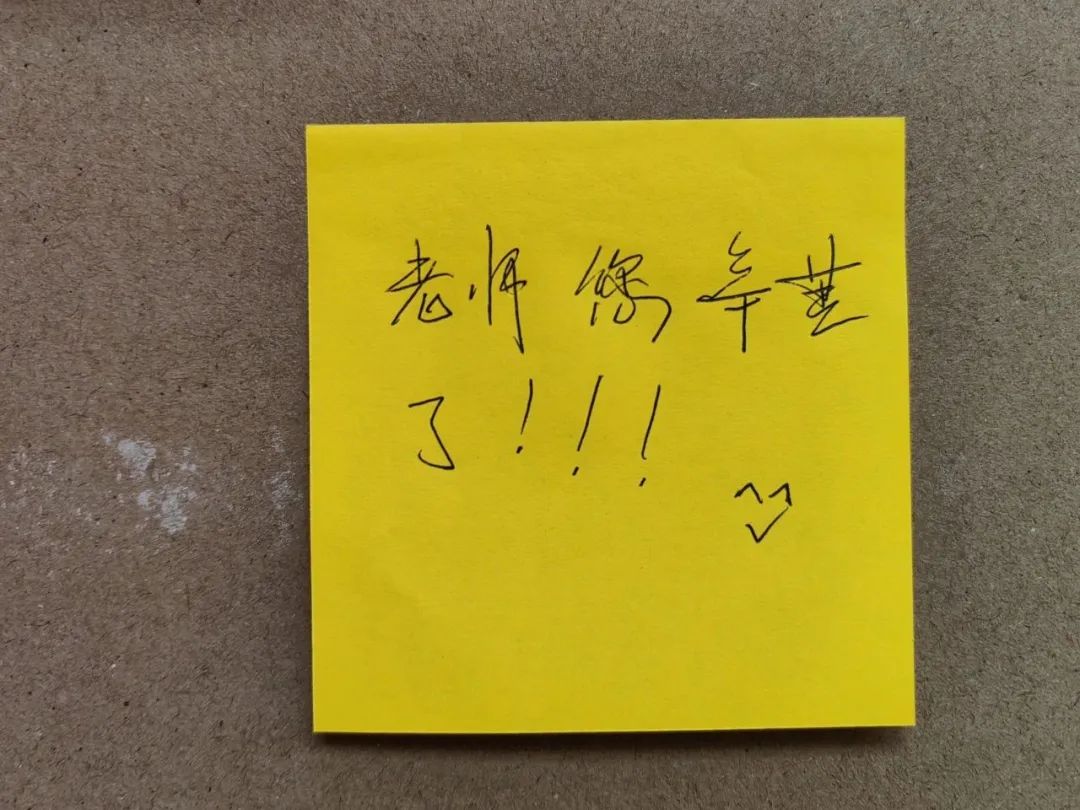 老师您辛苦
了!!!